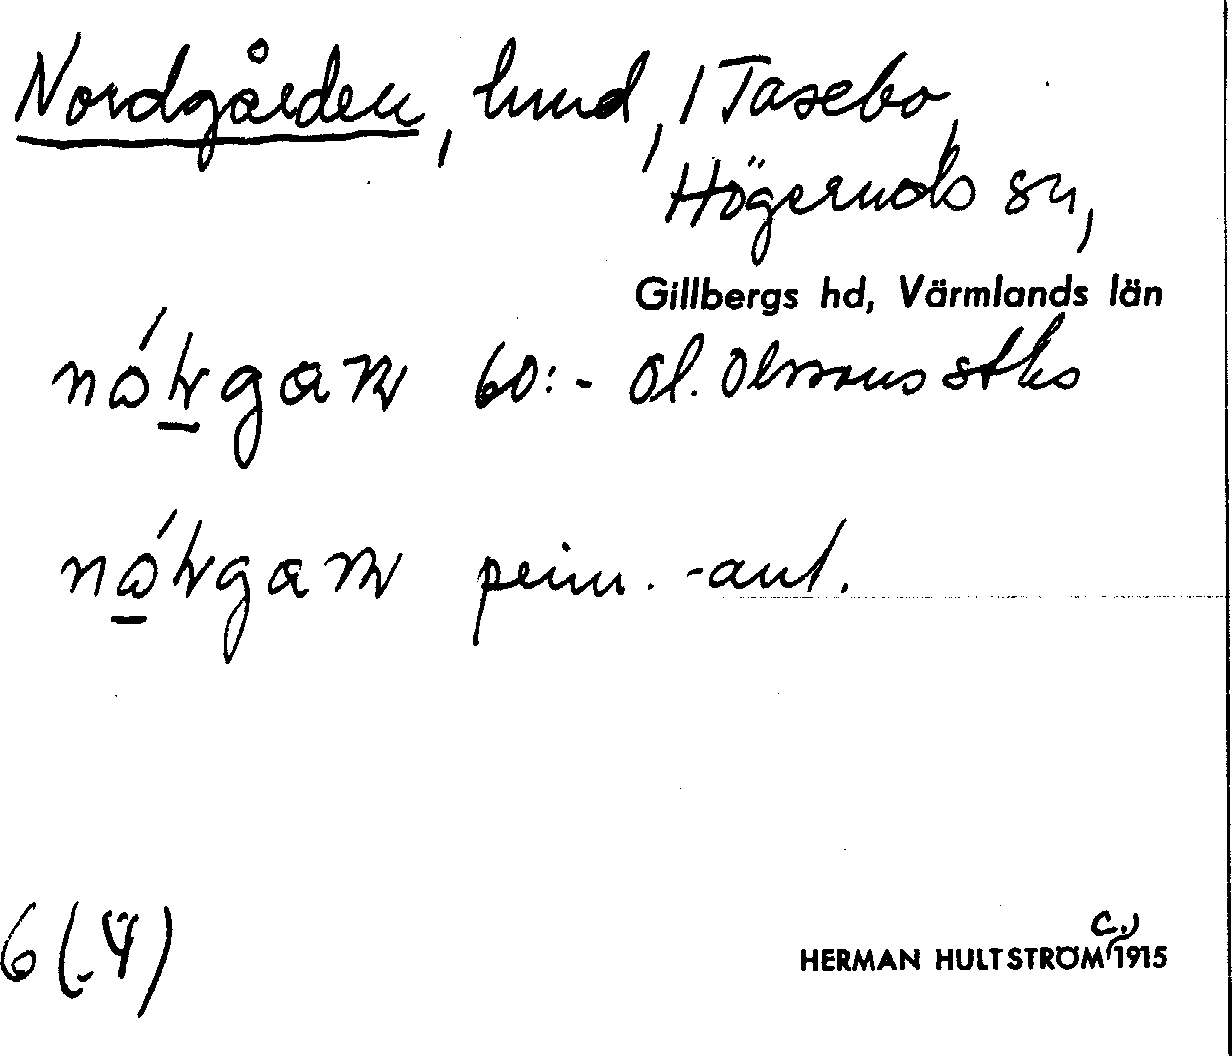 Nordgården, hmd, 1 Tasebo,
Högeruds sn,
Gillbergs hd, Värmlands län
60:- Ol. Olssons stks
prim. -ant.
6 (.4)
c.)
HERMAN HULTSTRÖM 1915